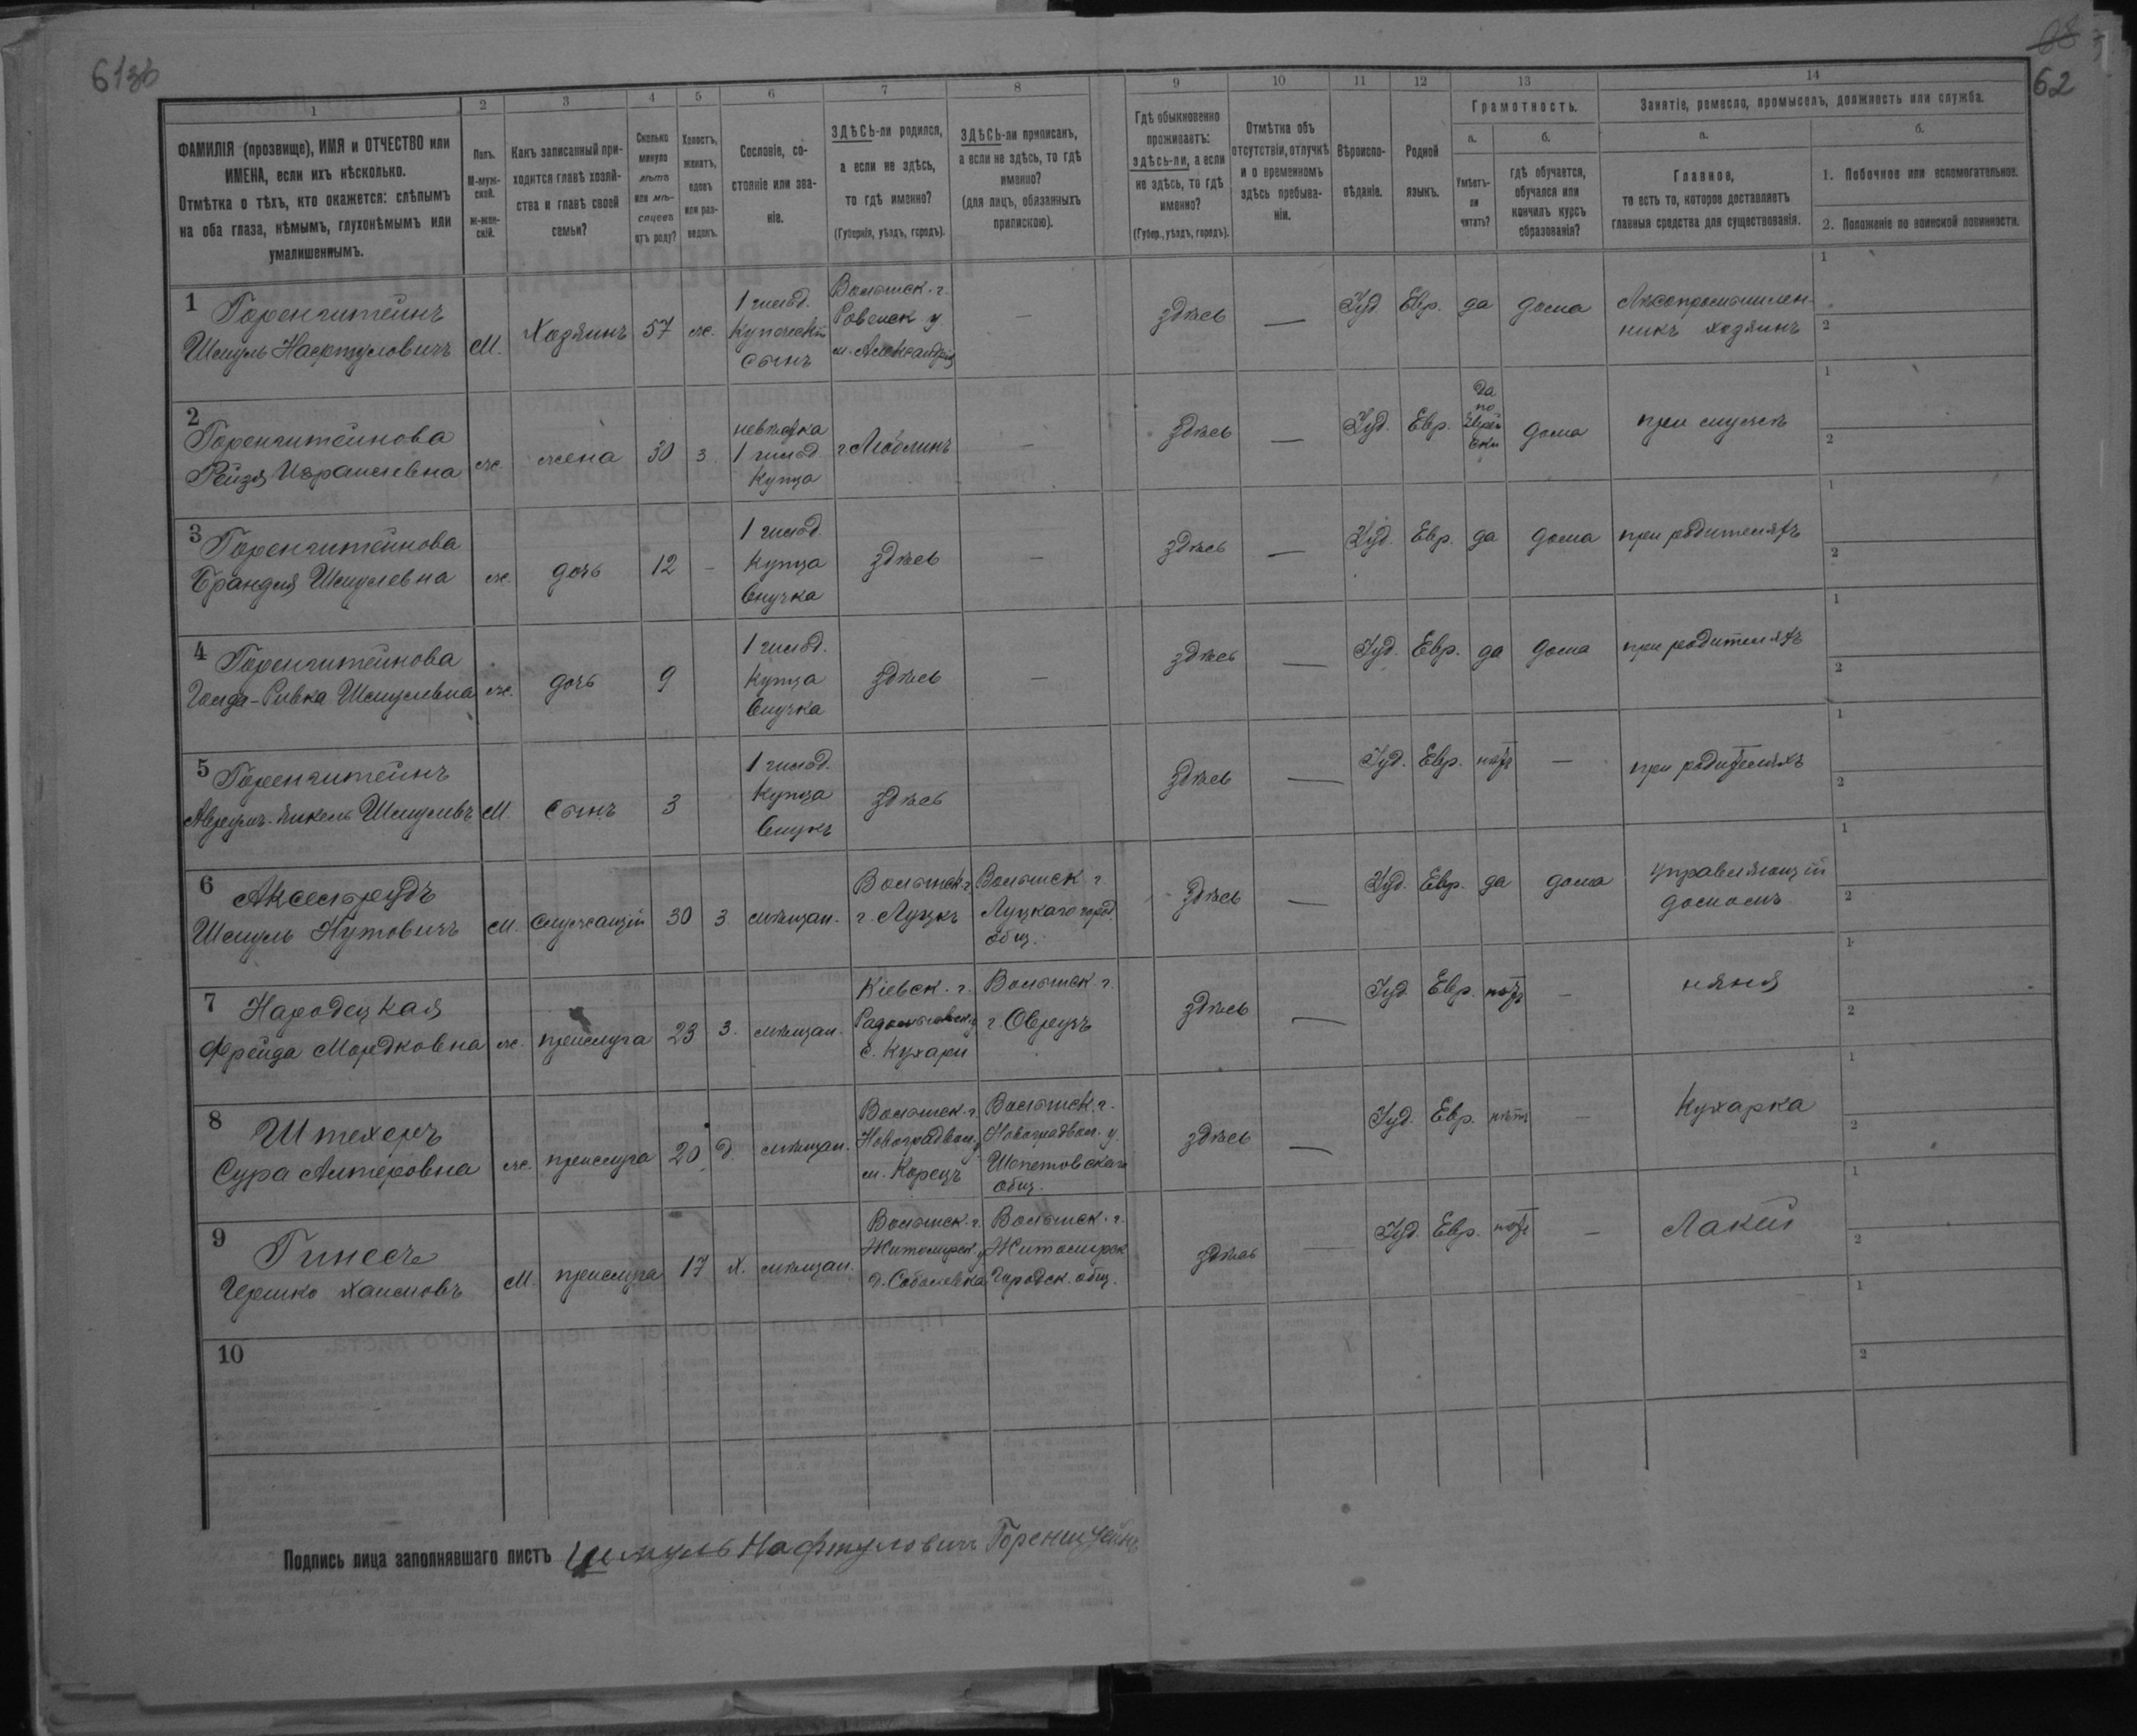 613б
68
62
1
2
3
4
5
6
7
8
9
10
11
12
13
14
ФАМИЛІЯ (прозвище), ИМЯ и ОТЧЕСТВО или
ИМЕНА, если ихъ нѣсколько.
Отмѣтка о тѣхъ, кто окажется: слѣпымъ
на оба глаза, нѣмымъ, глухонѣмымъ или
умалишеннымъ.
Полъ.
М-муж-
ской.
Ж-жен-
скій.
Какъ записанный при-
ходится главѣ хозяй-
ства и главѣ своей
семьи?
Сколько
минуло
лѣтъ
или мѣ-
сяцевъ
отъ роду?
Холостъ,
женатъ,
вдовъ
или раз-
веденъ.
Сословіе, со-
стояніе или зва-
ніе.
ЗДѢСЬ-ли родился,
а если не здѣсь,
то гдѣ именно?
(Губернія, уѣздъ, городъ).
ЗДѢСЬ-ли приписанъ,
а если не здѣсь, то гдѣ
именно?
(для лицъ, обязанныхъ
припискою).
Гдѣ обыкновенно
проживаетъ:
здѣсь-ли, а если
не здѣсь, то гдѣ
именно?
(Губер., уѣздъ, городъ).
Отмѣтка объ
отсутствіи, отлучкѣ
и о временномъ
здѣсь пребыва-
ніи.
Вѣроиспо-
вѣданіе.
Родной
языкъ.
Грамотность.
а.
б.
Умѣетъ-
ли
читать?
гдѣ обучается,
обучался или
кончилъ курсъ
образованія?
Занятіе, ремесло, промыселъ, должность или служба.
а.
б.
Главное,
то есть то, которое доставляетъ
главныя средства для существованія.
1. Побочное или вспомогательное.
2. Положеніе по воинской повинности.
1
Горенштейнъ
Шмуль Нафтуловичъ
М.
Хозяинъ
57
ж.
1 гильд.
Купеческій
сынъ
Волынск. г.
Ровенск у
м. Александрія
—
здѣсь
—
Іуд.
Евр.
да
дома
Лѣсопромышлен-
никъ хозяинъ
1
2
2
Горенштейнова
Рейзя Израилевна
ж.
жена
30
з.
невѣстка
1 гильд.
Купца
г. Люблинъ
—
здѣсь
—
Іуд.
Евр.
Да
по
Еврей
ски
дома
при мужѣ
1
2
3
Горенштейнова
Брандля Шмулевна
ж.
дочь
12
-
1 гильд
Купца
Внучка
здѣсь
—
здѣсь
—
Іуд.
Евр.
да
дома
при родителяхъ
1
2
4
Горенштейнова
Голда-Ривка Шмулевна
ж.
дочь
9
1 гильд.
Купца
Внучка
здѣсь
—
здѣсь
—
Іуд.
Евр.
да
дома
при родителяхъ
1
2
5
Горенштейнъ
Аврумъ-Янкель Шмулевъ
М.
сынъ
3
1 гильд.
Купца
Внукъ
здѣсь
здѣсь
—
Іуд.
Евр.
нѣтъ
—
при родителяхъ
1
2
6
Аксельрудъ
Шмуль Нутовичъ
М.
Служащій
30
з
мѣщан.
Волынск. г
г. Луцкъ
Волынск. г.
Луцкаго город.
общ.
здѣсь
—
Іуд.
Евр.
да
дома
Управляющій
домомъ
1
2
7
Народецкая
Фрейда Мордковна
ж.
прислуга
23
з.
мѣщан.
Кіевск. г.
Радомысльск у
с. Кухари
Волынск. г.
г. Овручъ
здѣсь
—
Іуд
Евр.
нѣтъ
—
няня
1
2
8
Штехеръ
Сура Алтеровна
ж.
прислуга
20
д.
мѣщан.
Волынск. г.
Новоградвол. у
м. Корецъ
Волынск. г.
Новоградвол. у.
Шепетовскаго
общ.
здѣсь
—
Іуд.
Евр.
нѣтъ
—
Кухарка
1
2
9
Гершко Хаимовъ
М
прислуга
17
Х.
мѣщан.
Волынск. г.
Житомирск. у
д. Соболевка
Волынск. г.
Житомирск
Городск. общ.
здѣсь
—
Іуд.
Евр.
нѣтъ
—
Лакей
1
2
10
1
2
Подпись лица заполнявшаго листъ Шмуль Нафтуловичъ Горенштейнъ